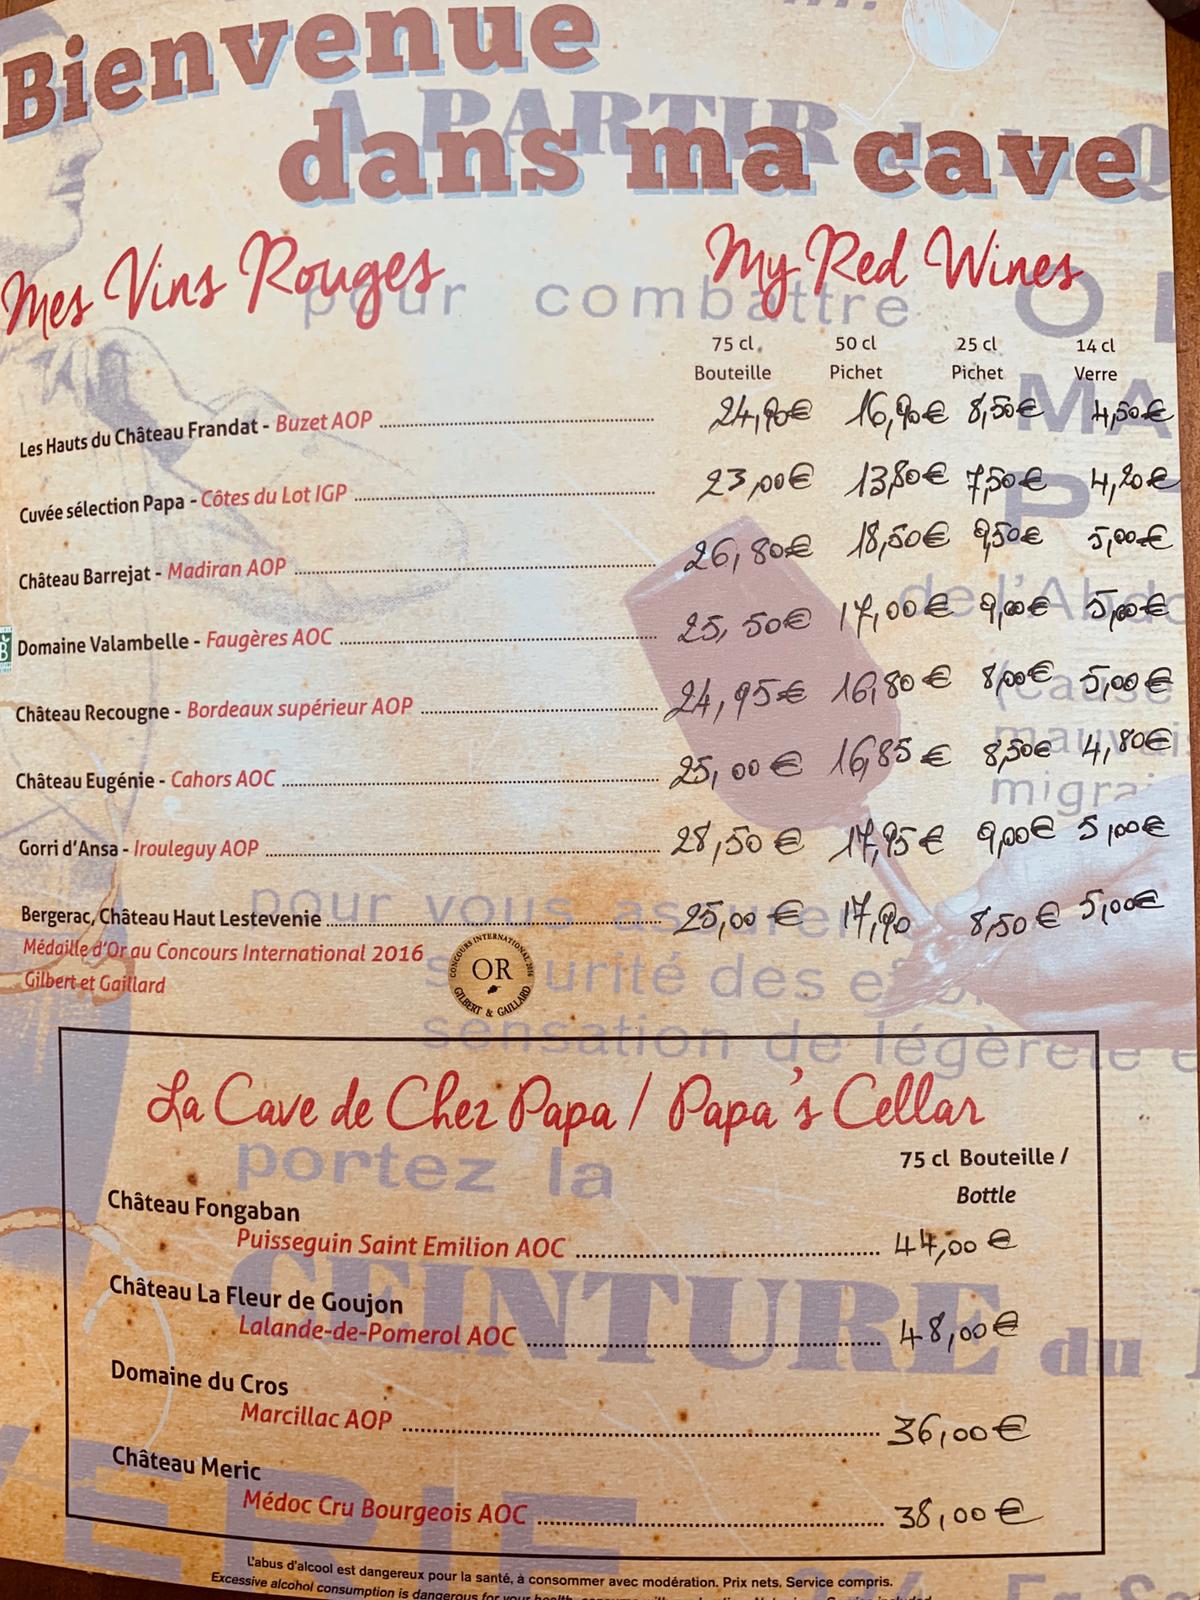 Bienvenue
A PARTIR
dans ma cave
Mes Vins Rouges My Red Wines
pour combattre
75 cl. 50 cl 25 cl 14 cl
Bouteille Pichet Pichet Verre
Les Hauts du Château Frandat - Buzet AOP 24,90€ 16,90€ 8,50€ 4,50€
Cuvée sélection Papa - Côtes du Lot IGP 23,00€ 13,80€ 7,50€ 4,20€
Château Barrejat - Madiran AOP 26,80€ 18,50€ 9,50€ 5,00€
Domaine Valambelle - Faugères AOC 25,50€ 17,00€ 9,00€ 5,00€
Château Recougne - Bordeaux supérieur AOP 24,95€ 16,80€ 8,00€ 5,00€
Château Eugénie - Cahors AOC 25,00€ 16,85€ 8,50€ 4,80€
Gorri d'Ansa - Irouleguy AOP 28,50€ 17,95€ 9,00€ 5,00€
pour vous assurer
Bergerac, Château Haut Lestevenie 25,00€ 17,90 8,50€ 5,00€
Médaille d'Or au Concours International 2016
Gilbert et Gaillard
CONCOURS INTERNATIONAL 2016
OR
GILBERT & GAILLARD
sensation de légèreté
La Cave de Chez Papa / Papa's Cellar
portez la
75 cl Bouteille /
Bottle
Château Fongaban
Puisseguin Saint Emilion AOC 44,00€
CEINTURE du
Château La Fleur de Goujon
Lalande-de-Pomerol AOC 48,00€
Domaine du Cros
Marcillac AOP 36,00€
Château Meric
Médoc Cru Bourgeois AOC 38,00€
L'abus d'alcool est dangereux pour la santé, à consommer avec modération. Prix nets. Service compris.
Excessive alcohol consumption is dangerous for your health